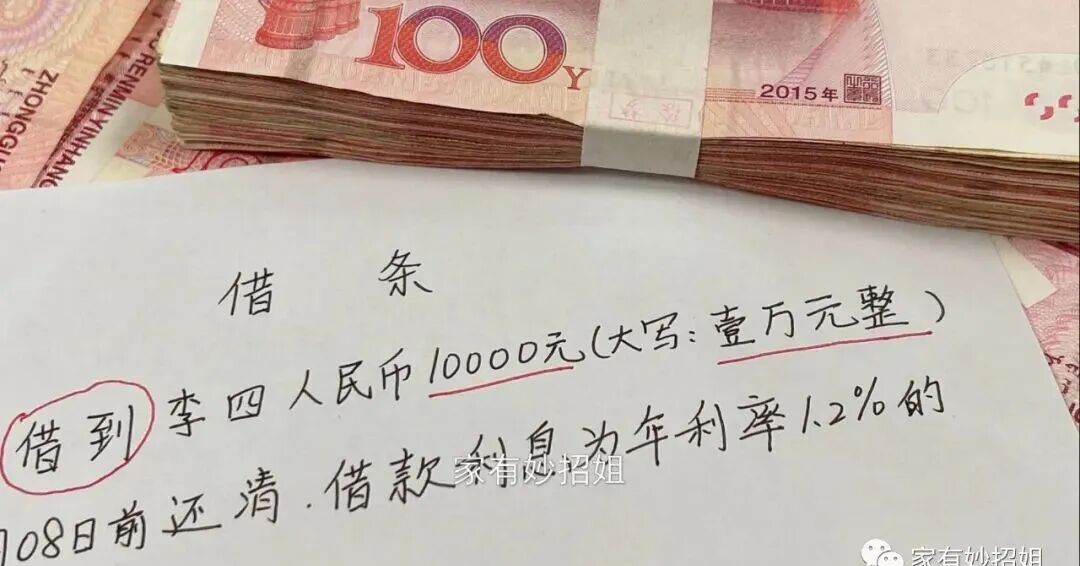 100
2015年
ZHONGGU
RENMIN YINHANG
借 条
借到李四人民币10000元(大写:壹万元整)
08日前还清.借款利息为年利率1.2%的
家有妙招姐
家有妙招姐